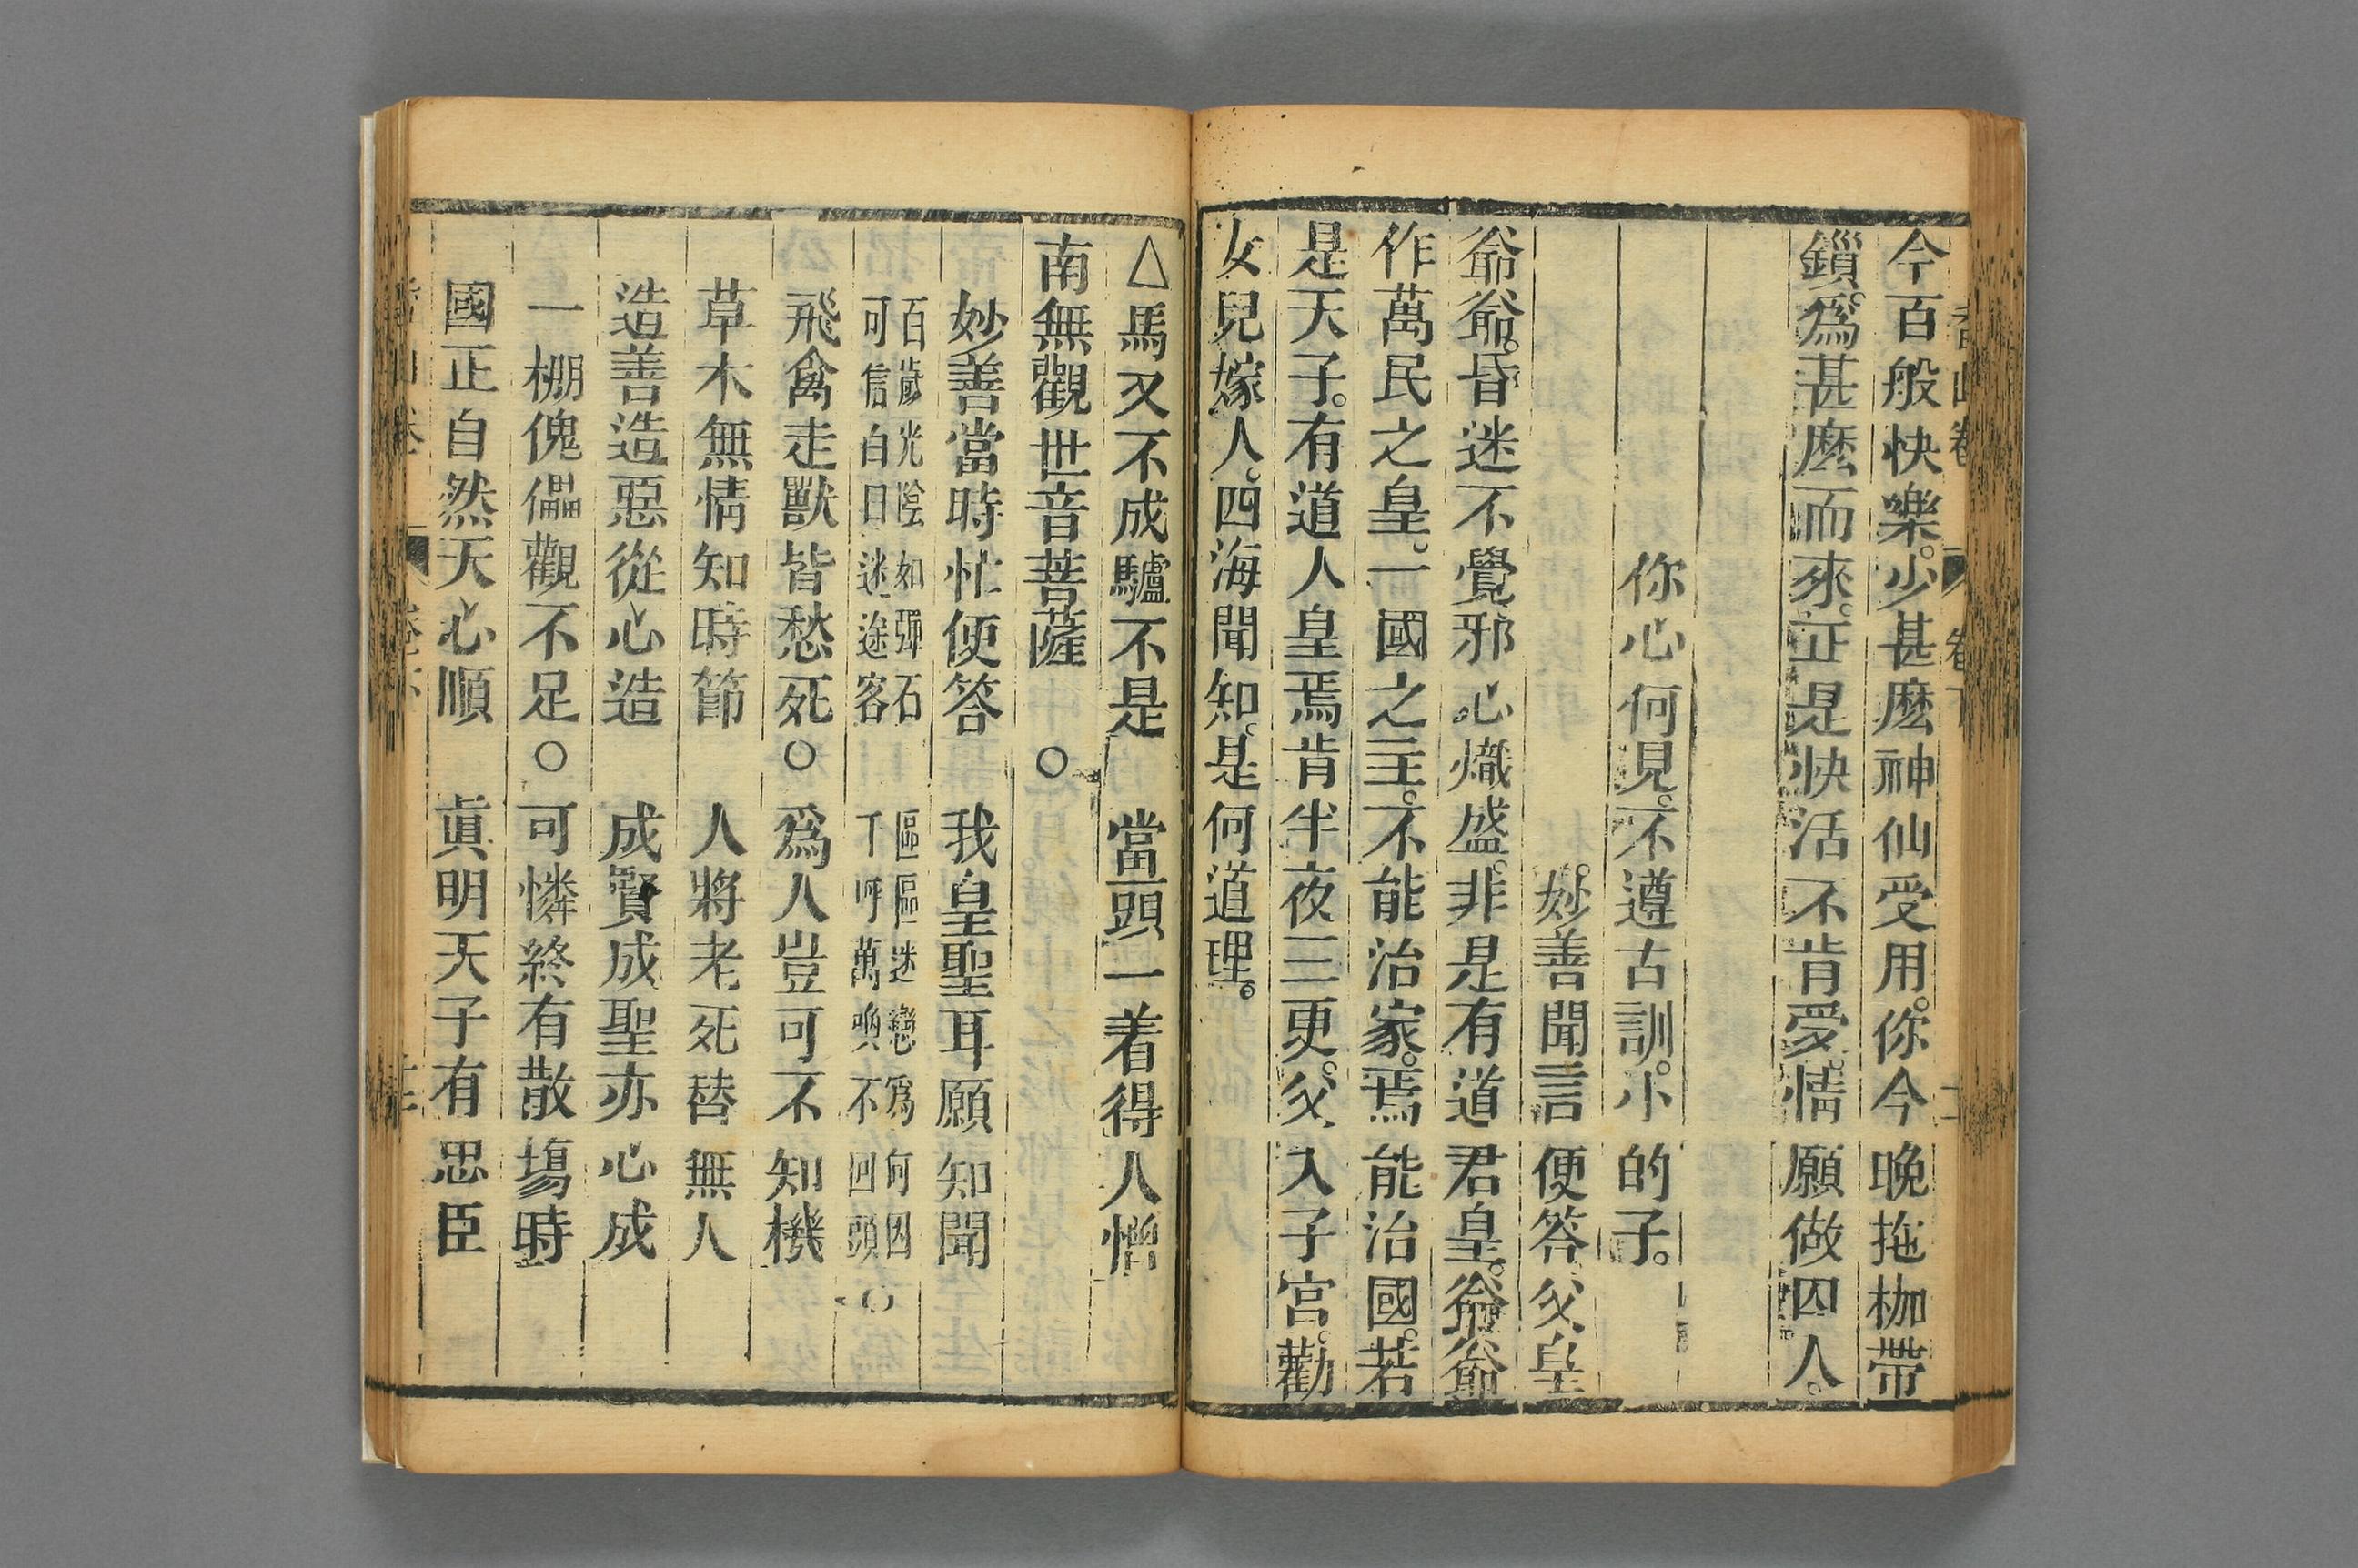 今百般快樂。少甚麽神仙受用。你今晚拖枷帶
鎖。爲甚麽而來。正是快活不肯受。情願做囚人。
你心何見。不遵古訓。小的子。
妙善聞言便答父皇
爺爺。昏迷不覺邪心熾盛。非是有道君皇。爺爺
作萬民之皇。一國之主。不能治家。焉能治國。若
是天子。有道人皇焉肯半夜三更。父入子宮。勸
女兒嫁人。四海聞知。是何道理。
△馬又不成驢不是 當頭一着得人憎
南無觀世音菩薩 ○
妙善當時忙便答 我皇聖耳願知聞
百歲光陰如彈石 區區迷戀爲何因
可信白口迷途客 千呼萬喚不回頭 ○
飛禽走獸皆愁死○爲人豈可不知機
草木無情知時節 人將老死替無人
造善造惡從心造 成賢成聖亦心成
一棚傀儡觀不足○可憐終有散場時
國正自然天心順 眞明天子有忠臣
香山卷 卷下